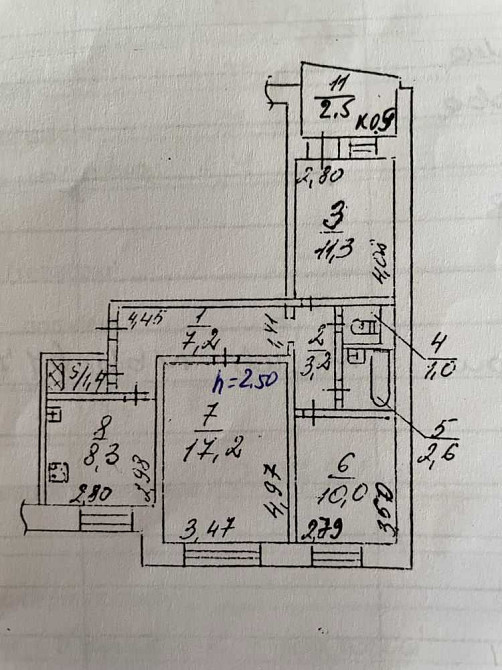 11
2.5
к0,9
2,80
3
11,3
4,03
4,45
1
7,2
1,41
2
3,2
4
1,0
5/1,4
h=2.50
7
17,2
5
2,6
8
8,3
2,98
2,80
4,97
3,47
6
10,0
3,60
2,79